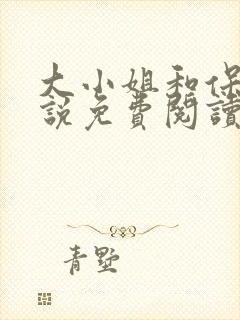 大小姐和保
說免費閱讀
青墅